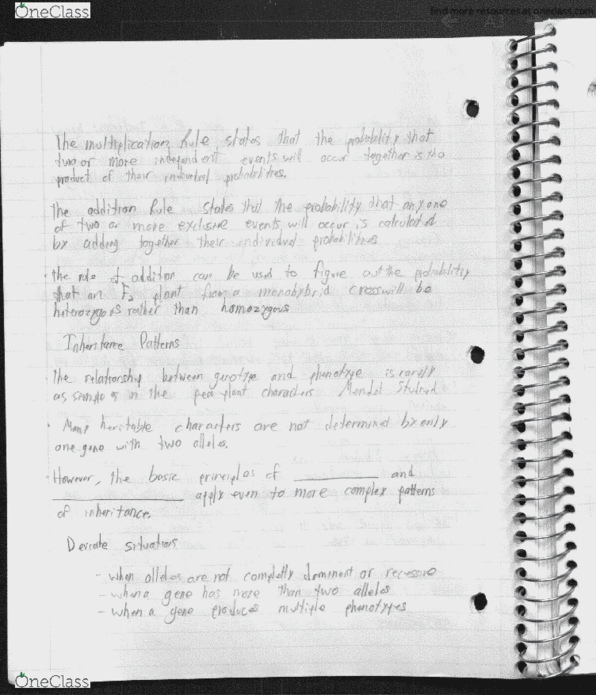 OneClass
find more resources at oneclass.com
The multiplication Rule states that the probability that
two or more independent events will occur together is the
product of their individual probabilities.
The addition Rule states that the probability that any one
of two or more exclusive events will occur is calculated
by adding together their individual probabilities
• the rule of addition can be used to figure out the probability
that an F2 plant from a monohybrid cross will be
heterozygous rather than homozygous
Inheritance Patterns
The relationship between genotype and phenotype is rarely
as simple as in the pea plant characters Mendel Studied
• Many heritable characters are not determined by only
one gene with two alleles.
• However, the basic principles of ____________ and
____________ apply even to more complex patterns
of inheritance
Deviate situations
- when alleles are not completly dominant or recessive
- when a gene has more than two alleles
- when a gene produces multiple phenotypes
OneClass